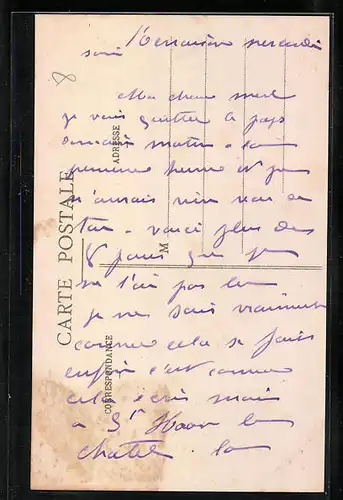 soir
Ma chere
je vais quitter le pays
demain matin - la
premiere heure et je
n'aurais rien reçu de
toi - voici plus de
8 jours que je
ne t'ai pas lu
je ne sais vraiment
comme cela se fait
enfin c'est comme
cela écris moi
a St Haon le
chatel. la
CARTE POSTALE
CORRESPONDANCE
ADRESSE
M
8